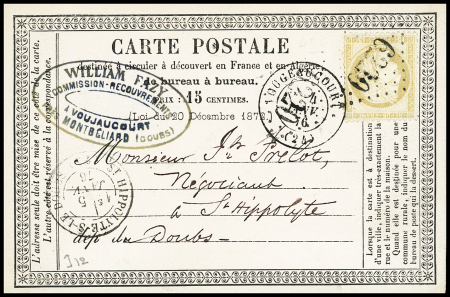 CARTE POSTALE
destinée à circuler à découvert en France et en Algérie
de bureau à bureau.
PRIX : 15 CENTIMES.
(Loi du 20 Décembre 1872.)
WILLIAM FAZY
COMMISSION-RECOUVREMENT
VOUJAUCOURT
MONTBÉLIARD (DOUBS)
6249
Monsieur
Négociant
à St Hippolyte
dép du Doubs
ST HIPPOLYTE-S-LE-D
1er
5
JANV
76
L'adresse seule doit être mise de ce côté de la carte.
L'autre côté est réservé à la correspondance.
Lorsque la carte est à destination
d'une ville, indiquer très-exactement
la rue et le numéro de la maison.
Quand elle est destinée pour une
commune rurale, indiquer le nom
du bureau de poste qui la dessert.